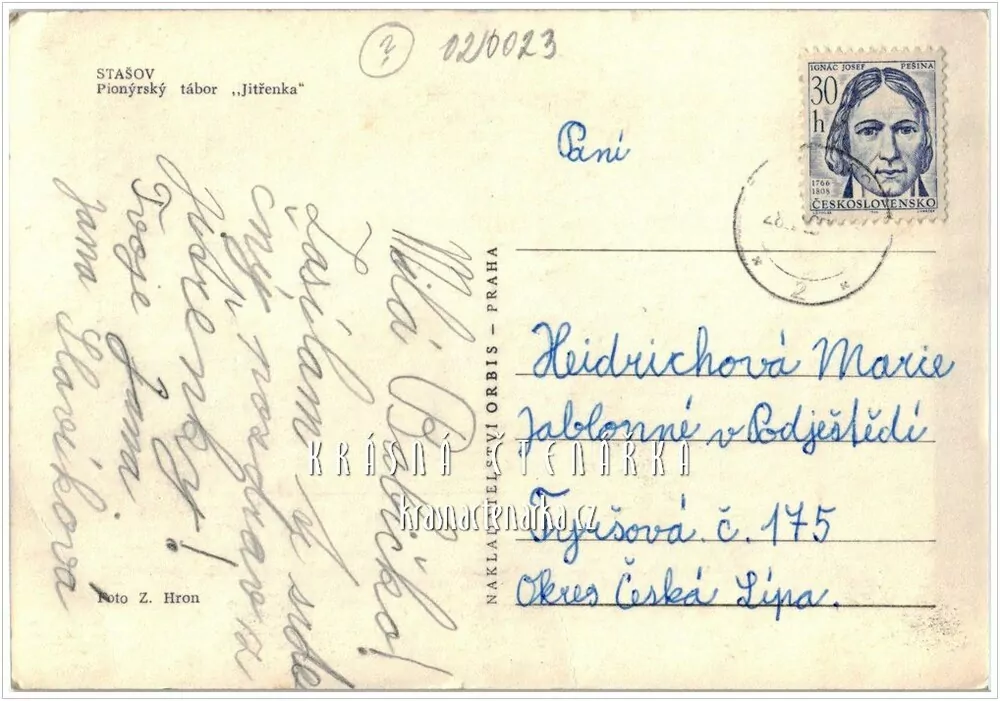 ? 020023
STAŠOV
Pionýrský tábor „Jitřenka"
IGNÁC JOSEF PEŠINA
30
h
1766
1808
ČESKOSLOVENSKO
Milá Babičko!
Zasílám ti srde
čný pozdrav z
Jitřenky!
Tvoje Jana
Jana Slavíková
NAKLADATELSTVÍ ORBIS – PRAHA
Paní
Heidrichová Marie
Jablonné v Podještědí
Tyršová č. 175
Okres Česká Lípa.
Foto Z. Hron
KRÁSNÁ ČTENÁRKA
krasnactenarka.cz
2